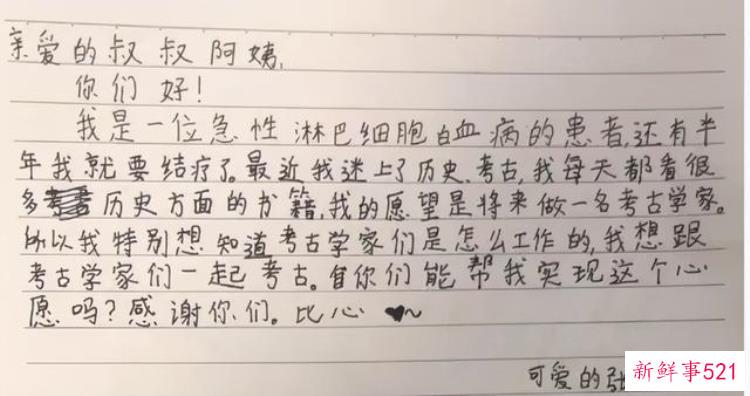 亲爱的叔叔阿姨,
你们好!
我是一位急性淋巴细胞白血病的患者,还有半
年我就要结疗了。最近我迷上了历史、考古,我每天都看很
多历史方面的书籍,我的愿望是将来做一名考古学家。
所以我特别想知道考古学家们是怎么工作的,我想跟
考古学家们一起考古。你们能帮我实现这个心
愿吗?感谢你们。比心 ♥~
可爱的张
新鲜事521